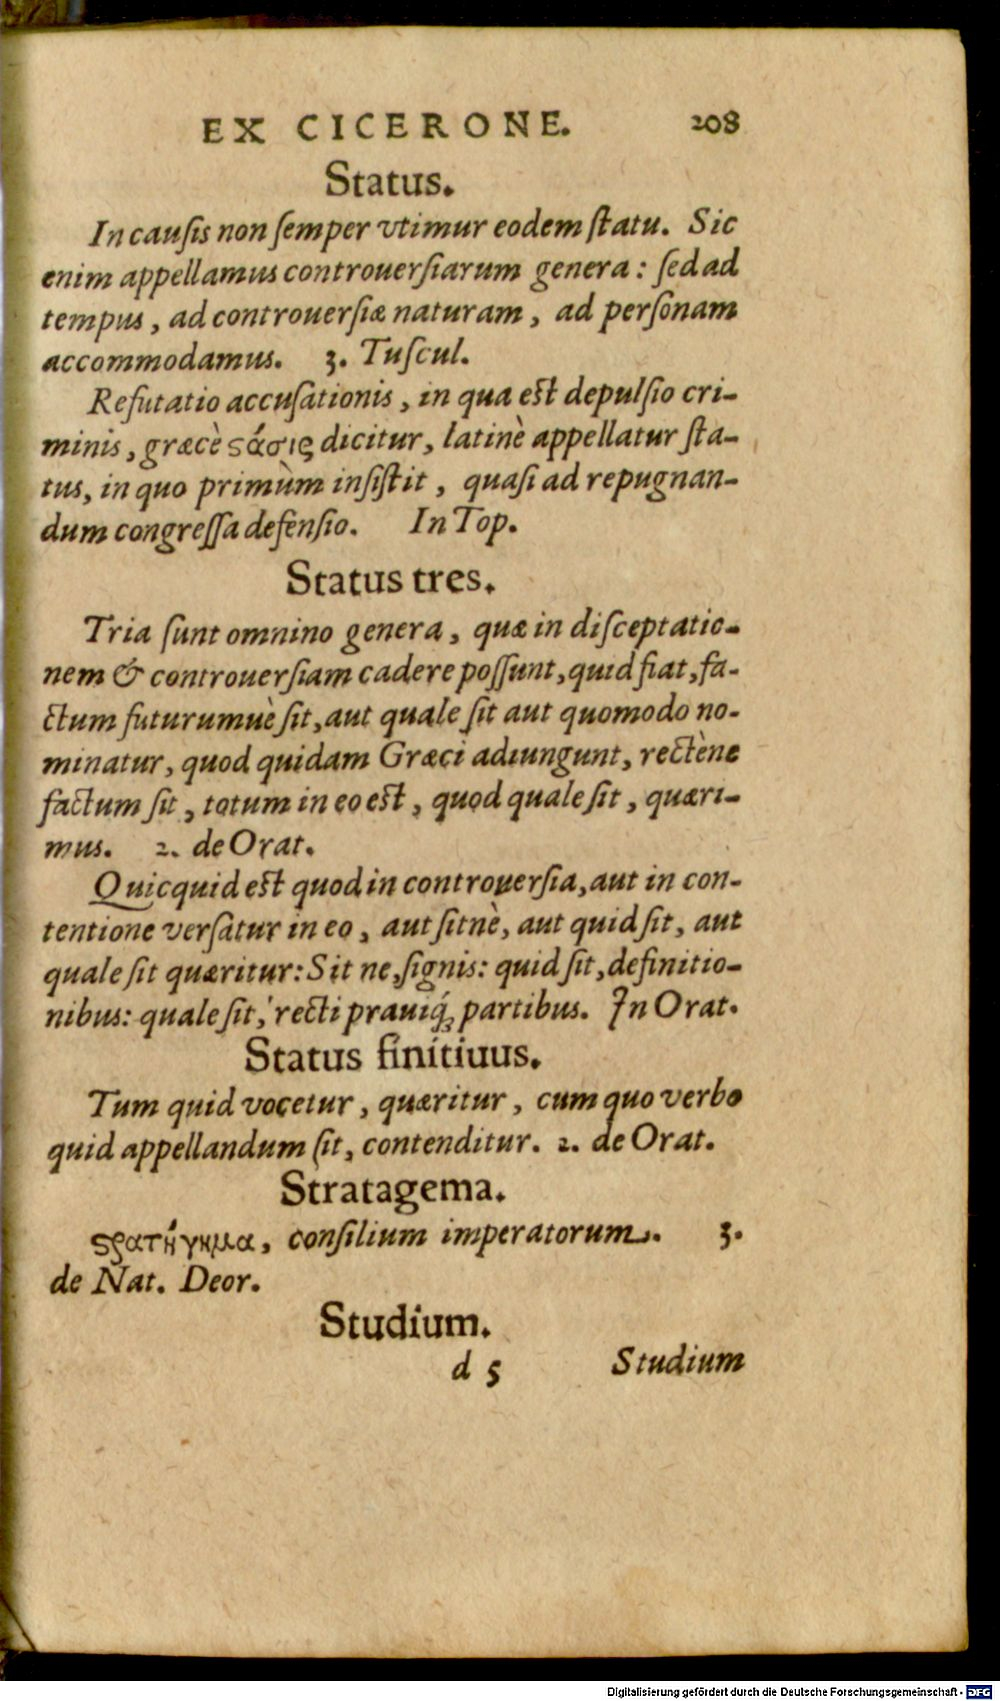 EX CICERONE. 208
Status.
In cauſis non ſemper vtimur eodem ſtatu. Sic
enim appellamus controuerſiarum genera: ſed ad
tempus, ad controuerſiæ naturam, ad perſonam
accommodamus. 3. Tuſcul.
Refutatio accuſationis, in qua est depulſio cri-
minis, græcè ϛάσις dicitur, latinè appellatur ſta-
tus, in quo primùm inſiſtit, quaſi ad repugnan-
dum congreſſa defenſio. In Top.
Status tres.
Tria ſunt omnino genera, quæ in diſceptatio-
nem & controuerſiam cadere poſſunt, quid fiat, fa-
ctum futurumuè ſit, aut quale ſit aut quomodo no-
minatur, quod quidam Græci adiungunt, rectène
factum ſit, totum in eo est, quod quale ſit, quæri-
mus. 2. de Orat.
Quicquid est quod in controuerſia, aut in con-
tentione verſatur in eo, aut ſitnè, aut quid ſit, aut
quale ſit quæritur: Sit ne, ſignis: quid ſit, definitio-
nibus: quale ſit, recti prauiq́; partibus. In Orat.
Status finitiuus.
Tum quid vocetur, quæritur, cum quo verbo
quid appellandum ſit, contenditur. 2. de Orat.
Stratagema.
ϛρατήγημα, conſilium imperatorum. 3.
de Nat. Deor.
Studium.
d 5 Studium
Digitalisierung gefördert durch die Deutsche Forschungsgemeinschaft - DFG